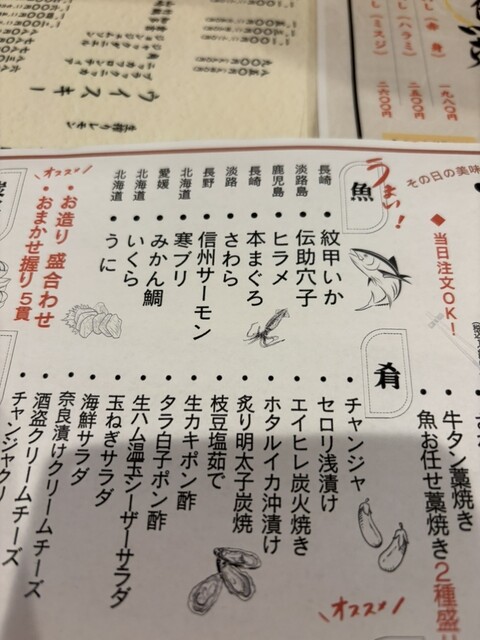 一九八〇円
二五〇〇円
二六〇〇円
し（ハラミ）
し（ミスジ）
ウイスキー
生搾りレモン
その日の美味
◆当日注文OK！
牛タン藁焼き
魚お任せ藁焼き2種盛
うまい！
魚
長崎 • 紋甲いか
淡路島 • 伝助穴子
鹿児島 • ヒラメ
長崎 • 本まぐろ
淡路 • さわら
長野 • 信州サーモン
北海道 • 寒ブリ
愛媛 • みかん鯛
北海道 • いくら
北海道 • うに
オススメ
• お造り 盛合わせ
• おまかせ握り5貫
肴
• チャンジャ
• セロリ浅漬け
• エイヒレ炭火焼き
• ホタルイカ沖漬け
• 炙り明太子炭焼
• 枝豆塩茹で
• 生カキポン酢
• タラ白子ポン酢
• 生ハム温玉シーザーサラダ
• 玉ねぎサラダ
• 海鮮サラダ
• 奈良漬けクリームチーズ
• 酒盗クリームチーズ
• チャンジャクリ
オススメ